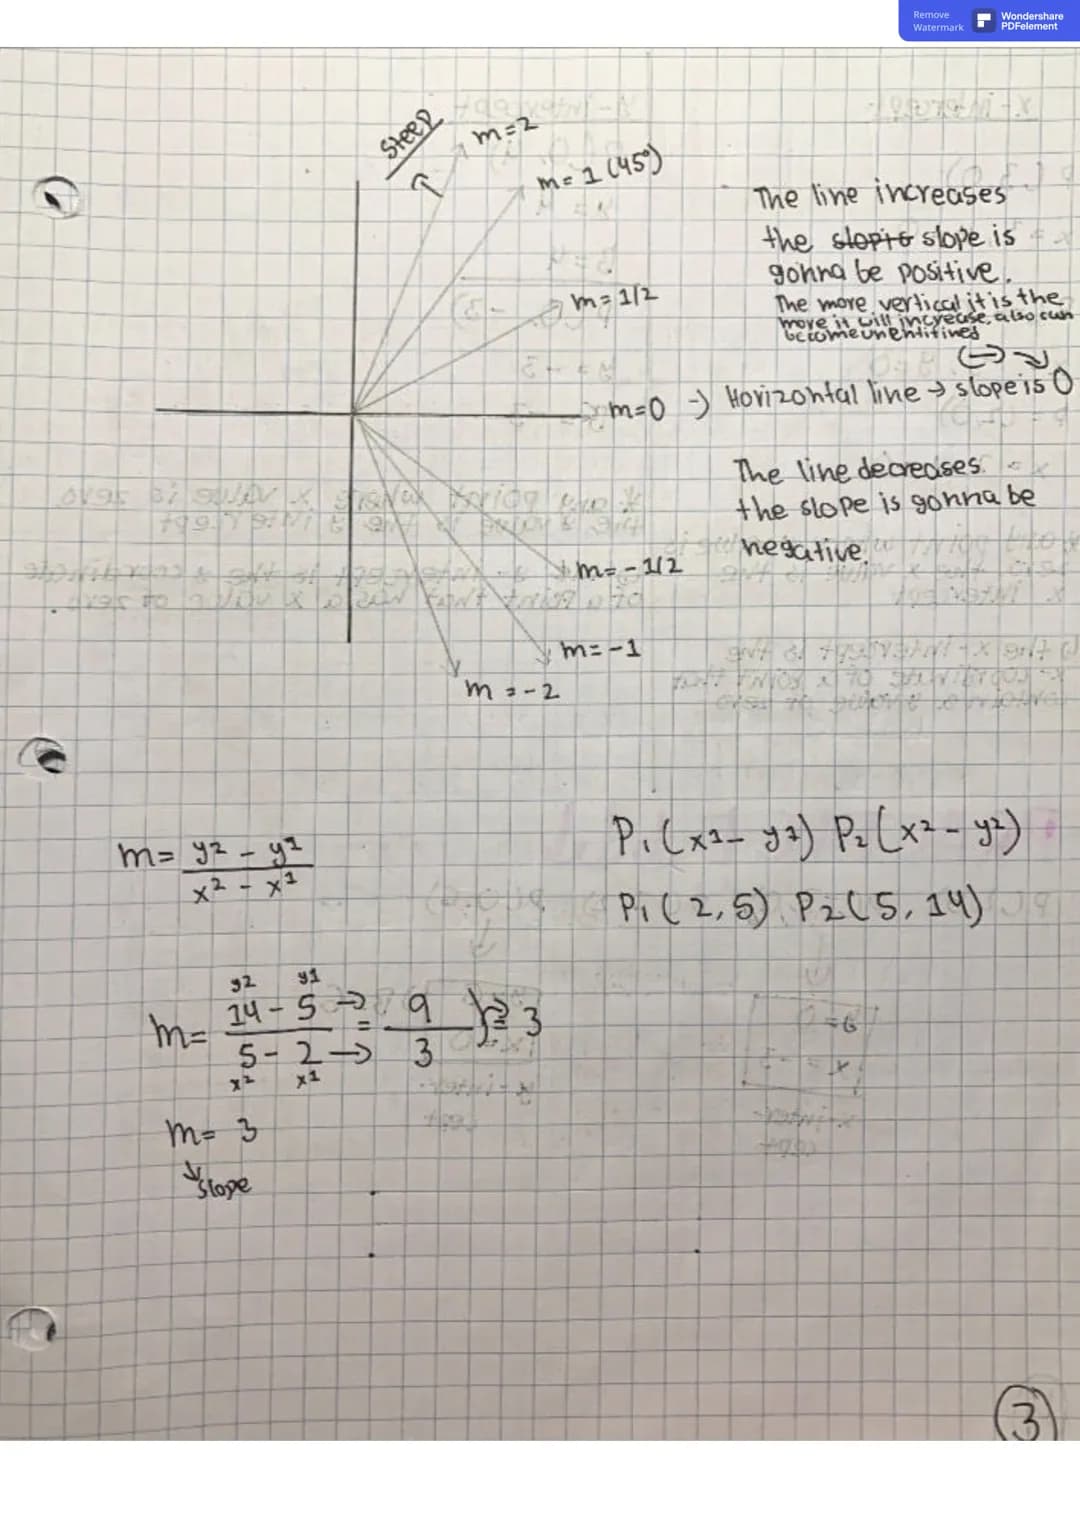 Remove
Watermark
Wondershare
PDFelement
Steep
m=2
m=1 (45°)
m=1/2
m=0 → Horizontal line → slope is 0
m=-1/2
m=-1
m=-2
The line increases
the slope is
gonna be positive.
The more vertical it is the
more it will increase, also can
become
The line decreases
the slope is gonna be
negative.
m= y2 - y1
x2 - x1
P1(x1- y1) P2(x2 - y2)
P1(2,5) P2(5,14)
y2 y1
m= 14-5 → = 9 } = 3
5-2 → 3
x2 x1
m= 3
↓ slope
3